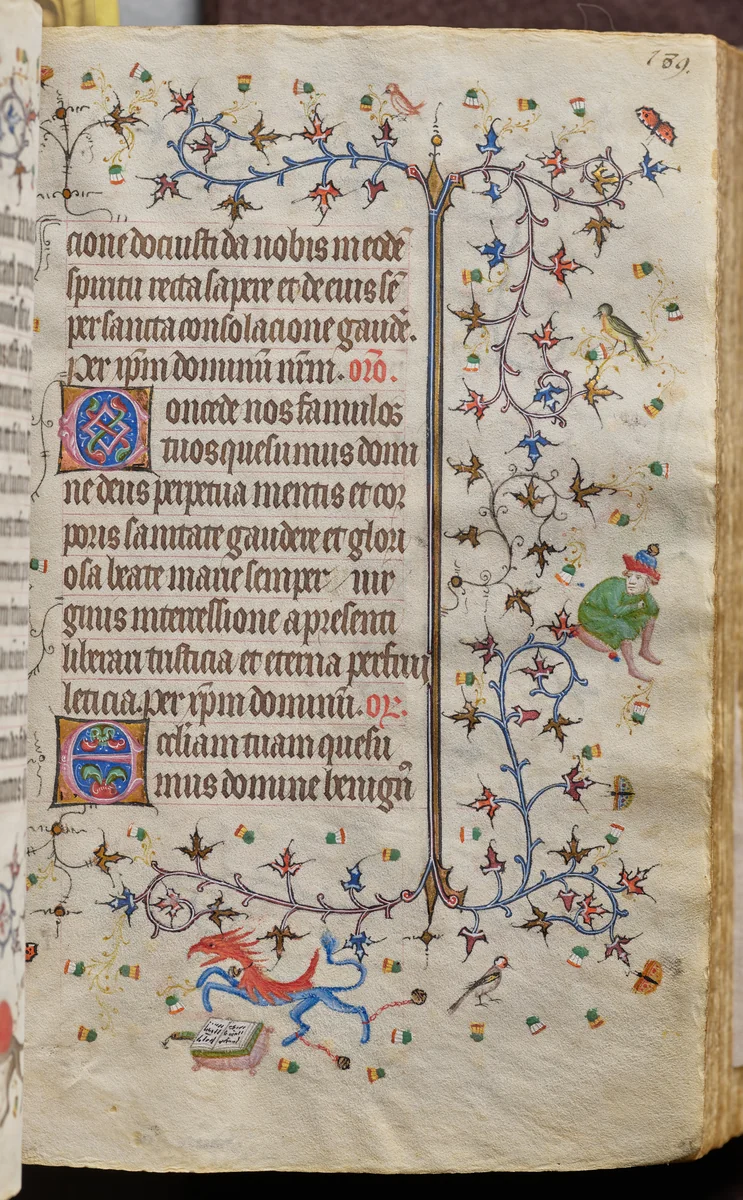 189.
cione docuisti da nobis in eodē
spiritu recta sapere et de eius sē
per sancta consolacione gaudē.
Per xp̄m dominū nr̄m. or̄o.
Concede nos famulos
tuos quesumus domi
ne deus perpetua mentis et cor
poris sanitate gaudere et glori
osa beate marie semper uir
ginis intercessione a presenti
liberari tristicia et eterna perfrui
leticia. per xp̄m dominū. or̄.
Ecclīam tuam quesu
mus domine benignꝰ